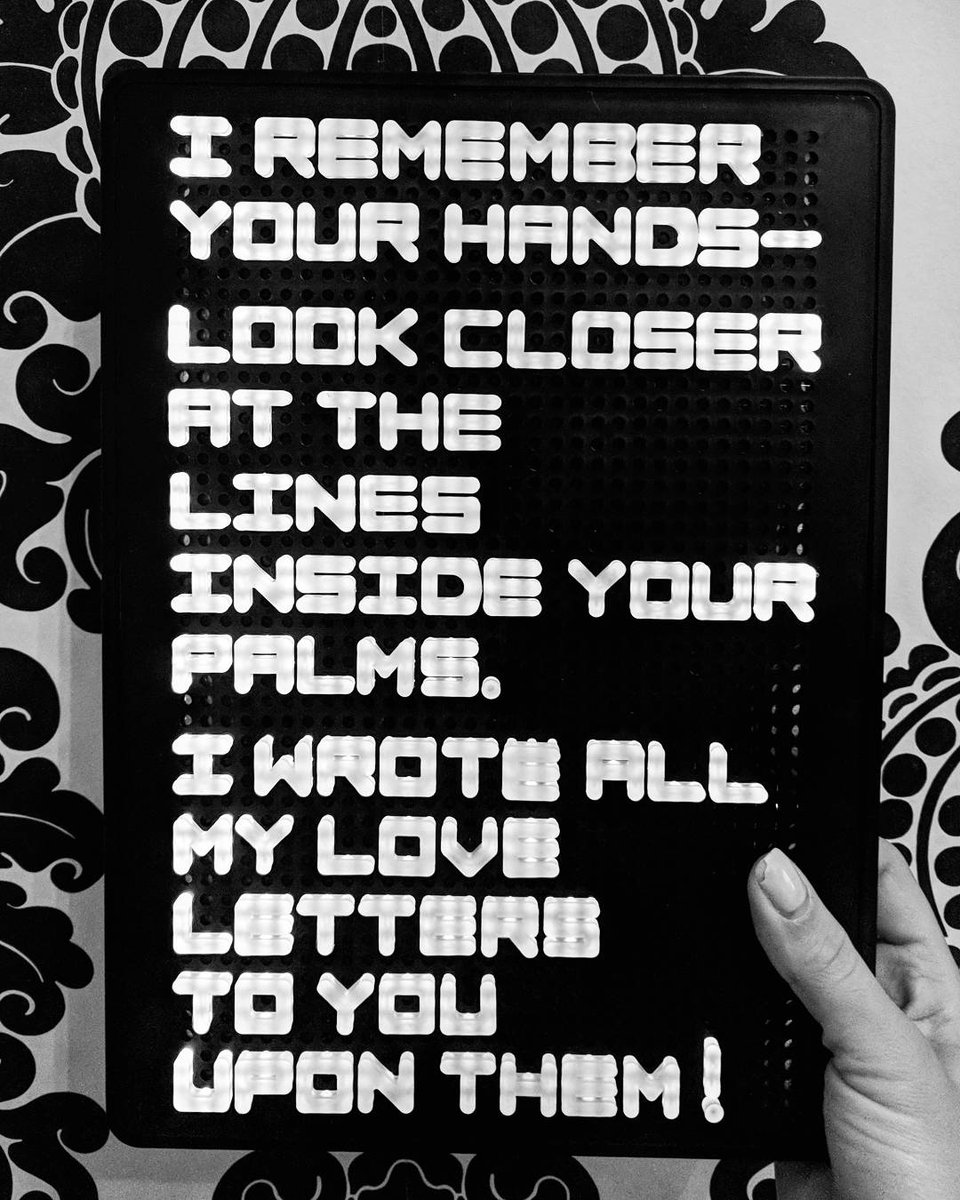 I REMEMBER
YOUR HANDS—
LOOK CLOSER
AT THE
LINES
INSIDE YOUR
PALMS.
I WROTE ALL
MY LOVE
LETTERS
TO YOU
UPON THEM!